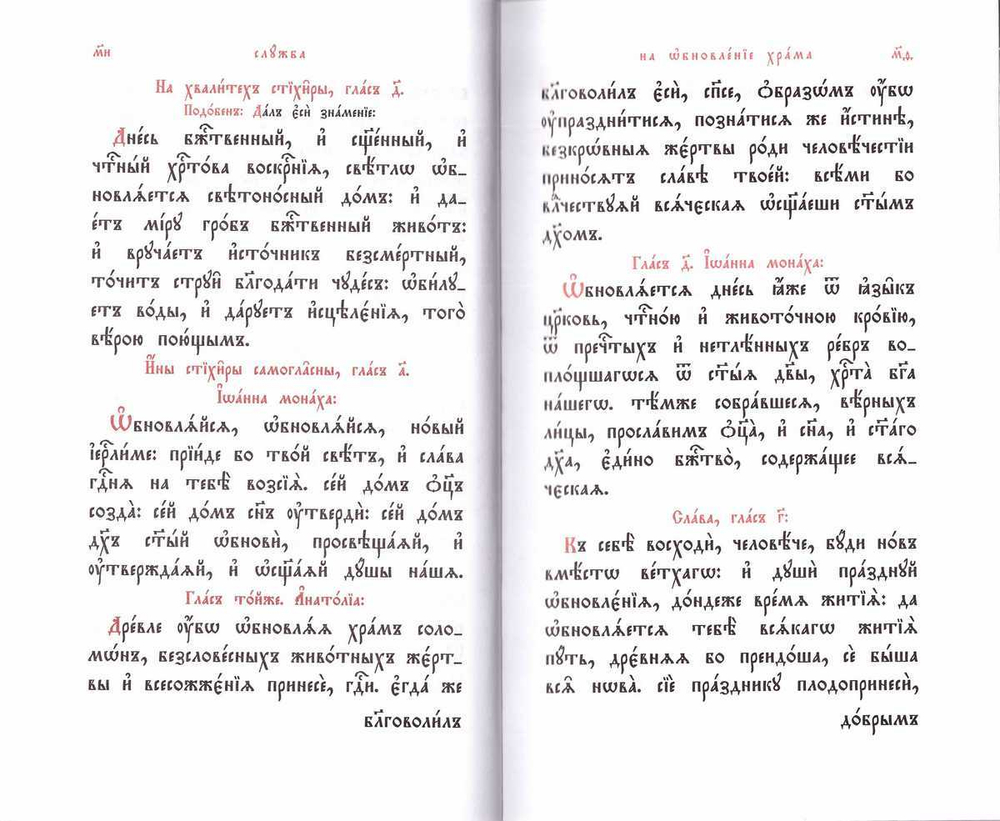 м҃н
слꙋ́жба
На хвали́техъ стїхи̑ры, гла́съ д҃.
Подо́бенъ: Да́лъ є҆сѝ зна́менїе:
Дне́сь бж҃́твенный, и҆ сщ҃е́нный, и҆
чт҃ны́й хр҃то́ва воскрⷭ҇нїѧ, свѣ́тлѡ ѡ҆б_
новлѧ́етсѧ свѣтоно́сный до́мъ: и҆ да_
е́тъ мі́рꙋ гро́бъ бж҃́твенный живо́тъ:
и҆ врꙋча́етъ и҆сто́чникъ безсме́ртный,
то́читъ стрꙋи̑ бл҃года́ти чꙋде́съ: ѡ҆би́лꙋ_
етъ во́ды, и҆ да́рꙋетъ и҆сцѣлє́нїѧ, того̀
вѣ́рою пою́щымъ.
И҆́ны стїхи̑ры самогла̑сны, гла́съ а҃.
І҆ѡа́нна мона́ха:
Ѡ҆бновлѧ́йсѧ, ѡ҆бновлѧ́йсѧ, но́вый
і҆ерⷭ҇ли́ме: прїи́де бо тво́й свѣ́тъ, и҆ сла́ва
гдⷭ҇нѧ на тебѣ̀ возсїѧ̀. се́й до́мъ ѻ҆ц҃ъ
созда̀: се́й до́мъ сн҃ъ ᲂу҆твердѝ: се́й до́мъ
дх҃ъ ст҃ы́й ѡ҆бновѝ, просвѣща́ѧй, и҆
ᲂу҆твержда́ѧй, и҆ ѡ҆сщ҃а́ѧй дꙋ́шы на́шѧ.
Гла́съ то́йже. А҆нато́лїа:
Дре́вле ᲂу҆́бѡ ѡ҆бновлѧ́ѧ хра́мъ соло_
мѡ́нъ, безслове́сныхъ живо́тныхъ же́рт_
вы и҆ всесожжє́нїѧ принесѐ, гдⷭ҇и. є҆гда́ же
бл҃говоли́лъ
на ѡ҆бновле́нїе хра́ма
м҃д.
бл҃говоли́лъ є҆сѝ, сп҃се, ѻ҆́бразѡмъ ᲂу҆́бѡ
ᲂу҆праздни́тисѧ, позна́тисѧ же и҆́стинѣ,
безкрѡ́вныѧ же́ртвы ро́ди человѣ́честїи
прино́сѧтъ сла́вѣ твое́й: всѣ́ми бо
влⷣчествꙋѧй всѧ́чєскаѧ ѡ҆сщ҃а́еши ст҃ы́мъ
дх҃омъ.
Гла́съ д҃. І҆ѡа́нна мона́ха:
Ѡ҆бновлѧ́етсѧ дне́сь ꙗ҆́же ѿ ꙗ҆зы̑къ
цр҃ковь, чт҃но́ю и҆ живото́чною кро́вїю,
ѿ преч҃тыхъ и҆ нетлѣ́нныхъ ре́бръ во_
пло́щшагѡсѧ ѿ ст҃ы́ѧ дв҃ы, хр҃та̀ бг҃а
на́шегѡ. тѣ́мже собра́вшесѧ, вѣ́рныхъ
ли́цы, просла́вимъ ѻ҆ц҃а̀, и҆ сн҃а, и҆ ст҃а́го
дх҃а, є҆ди́но бж҃тво̀, содержа́щее всѧ̑_
чєскаѧ.
Сла́ва, гла́съ г҃:
Къ себѣ̀ восходѝ, человѣ́че, бꙋ́ди но́въ
вмѣ́стѡ ве́тхагѡ: и҆ дꙋшѝ пра́зднꙋй
ѡ҆бновлє́нїѧ, до́ндеже вре́мѧ житїѧ̀: да
ѡ҆бновлѧ́етсѧ тебѣ̀ всѧ́кагѡ житїѧ̀
пꙋ́ть, дрє́внѧѧ бо преидо́ша, сѐ бы́ша
всѧ̑ нѡва̀. сїѐ пра́здникꙋ плодопринесѝ,
до́брымъ